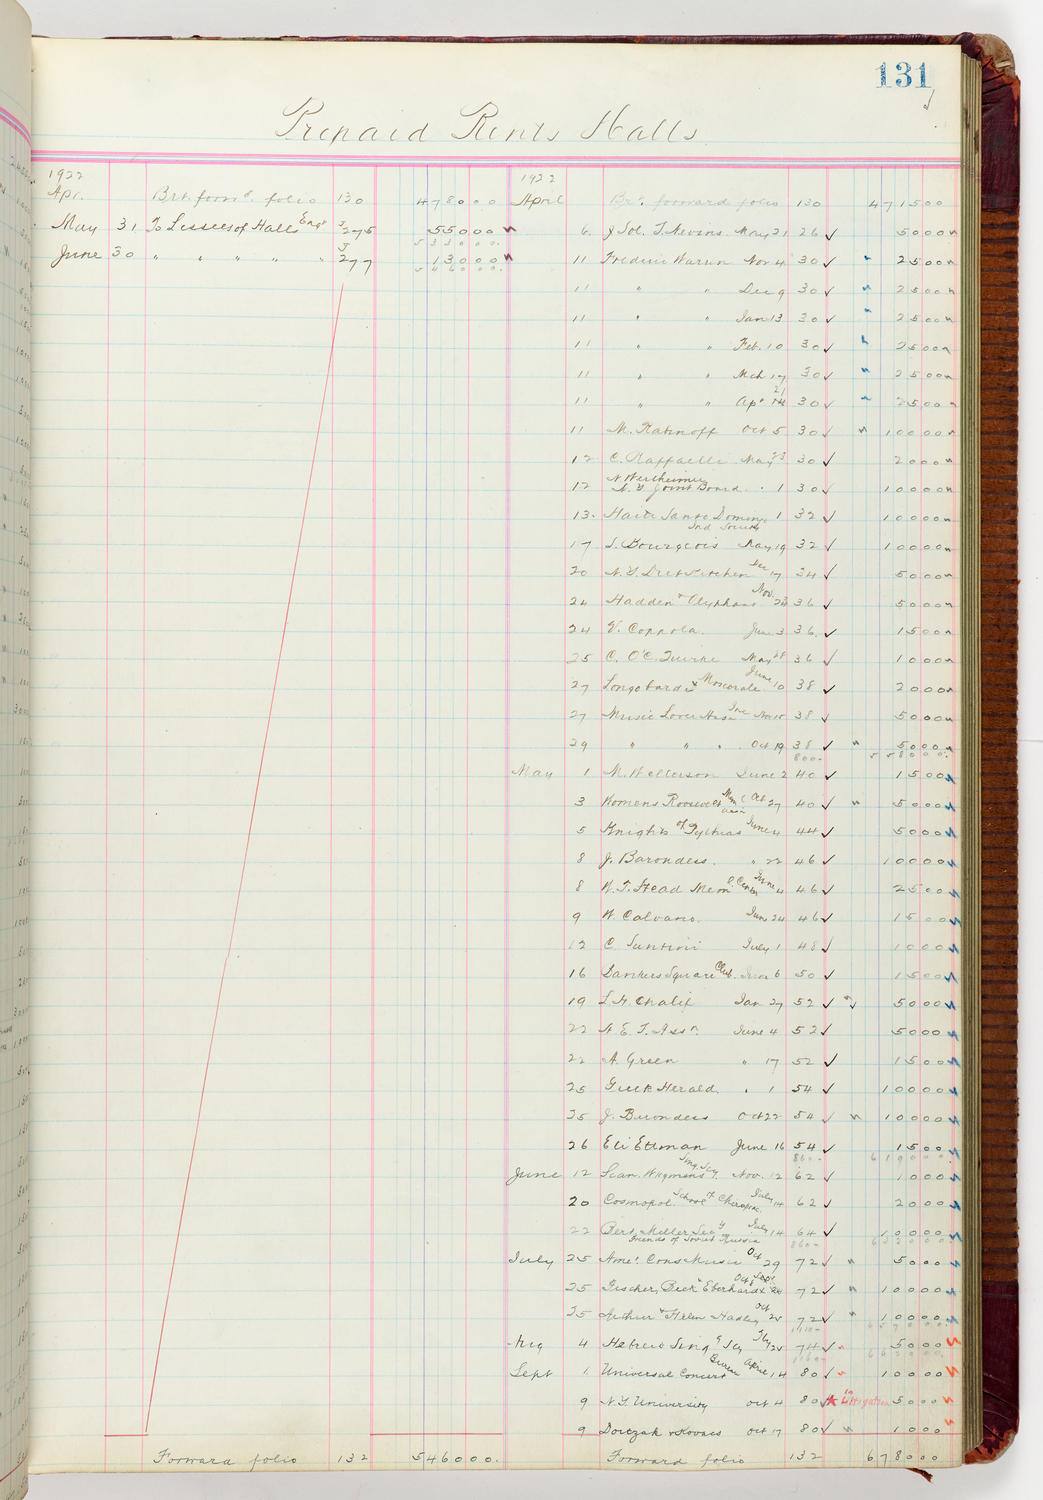 131
Prepaid Rents Halls
1922
Apr. Brt. forwd folio 130 4780 00
May 31 To Lessees of Halls Engr 3/275 550 00
5330 00
June 30 " " " " " 3/277 130 00
5460 00
Forward folio 132 5460 00
1922
April Brt. forward folio 130 4715 00
6. J Sol. T. Nevins May 21 26 ✓ 50 00
11 Frederic Warren Nov 4 30 ✓ 25 00
11 " " Dec 9 30 ✓ 25 00
11 " " Jan 13 30 ✓ 25 00
11 " " Feb. 10 30 ✓ 25 00
11 " " Mch 17 30 ✓ 25 00
11 " " Apr 21 30 ✓ 25 00
11 M. Ratnoff Oct 5 30 ✓ 100 00
12 C. Raffaelli May 23 30 ✓ 20 00
12 N Wertheimer N. Y Joint Board " 1 30 ✓ 100 00
13 Haiti Santo Domingo Ind Society 1 32 ✓ 100 00
17 S. Bourgeois May 19 32 ✓ 100 00
20 N. Y. Diet Kitchen Dec 17 34 ✓ 50 00
24 Hadden & Olyphant Nov. 23 36 ✓ 50 00
24 V. Coppola June 3 36 ✓ 15 00
25 C. O'C. Quirke May 28 36 ✓ 10 00
27 Longobardi & Moscorale June 10 38 ✓ 20 00
27 Music Lover Assn Inc Nov 10 38 ✓ 50 00
29 " " " Oct 19 38 ✓ 50 00
800 - 5580 00
May 1 M. Wellerson June 2 40 ✓ 15 00
3 Womens Roosevelt Mem'l Assn Oct 27 40 ✓ 50 00
5 Knights of Pythias June 4 44 ✓ 50 00
8 J. Barondess " 22 46 ✓ 100 00
8 W. T. Stead Mem'l Center June 4 46 ✓ 25 00
9 W. Calvano. June 24 46 ✓ 15 00
12 C. Santini July 1 48 ✓ 10 00
16 Dankers Square Club. June 6 50 ✓ 15 00
19 L. H. Chalif Jan 27 52 ✓ 50 00
22 N. E. T. Assn. June 4 52 ✓ 50 00
22 A. Green " 17 52 ✓ 15 00
25 Greek Herald " 1 54 ✓ 100 00
25 J. Barondess Oct 22 54 ✓ 100 00
26 Eli Ettman June 16 54 ✓ 15 00
860 - 6190 00
June 12 Scan. Wagmens Sing. Soc'y Nov. 12 62 ✓ 10 00
20 Cosmopol. School of Chiropr. July 14 62 ✓ 20 00
22 Bert. Miller Secy July 14 64 ✓ 100 00
Friends of Soviet Russia 860 - 6320 00
July 25 Amer. Cons Music Oct 29 72 ✓ 50 00
25 Fischer, Beck & Eberhardt Oct 8 72 ✓ 100 00
25 Arthur & Helen Hadley Oct 25 72 ✓ 100 00
6570 00
Aug 4 Hebrew Sing'g Scy Feby 25 74 ✓ 50 00
1160 - 6620 00
Sept 1 Universal Concert Bureau April 14 80 ✓ 100 00
9 N. Y. University Oct 4 80 ✓ * in Litigation 50 00
9 Dorczak & Kovacs Oct 17 80 ✓ 10 00
Forward folio 132 6780 00